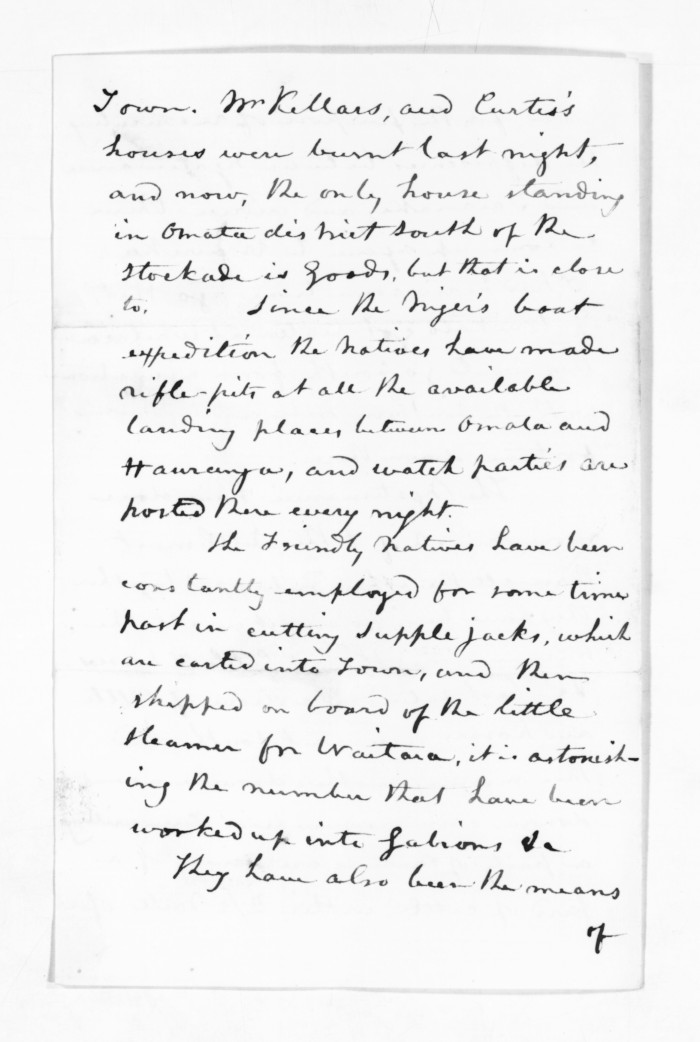 Town. Mr Kellars, and Curtis's
houses were burnt last night,
and now, the only house standing
in Omata district south of the
Stockade is Goods, but that is close
to. Since the Niger's boat
expedition the Natives have made
rifle-pits at all the available
landing places between Omata and
Hauranga, and watch parties are
posted there every night.
The Friendly Natives have been
constantly employed for some time
past in cutting Supple jacks, which
are carted into Town, and then
shipped on board of the little
steamer for Waitara, it is astonish-
ing the number that have been
worked up into Gabions &c
They have also been the means
of